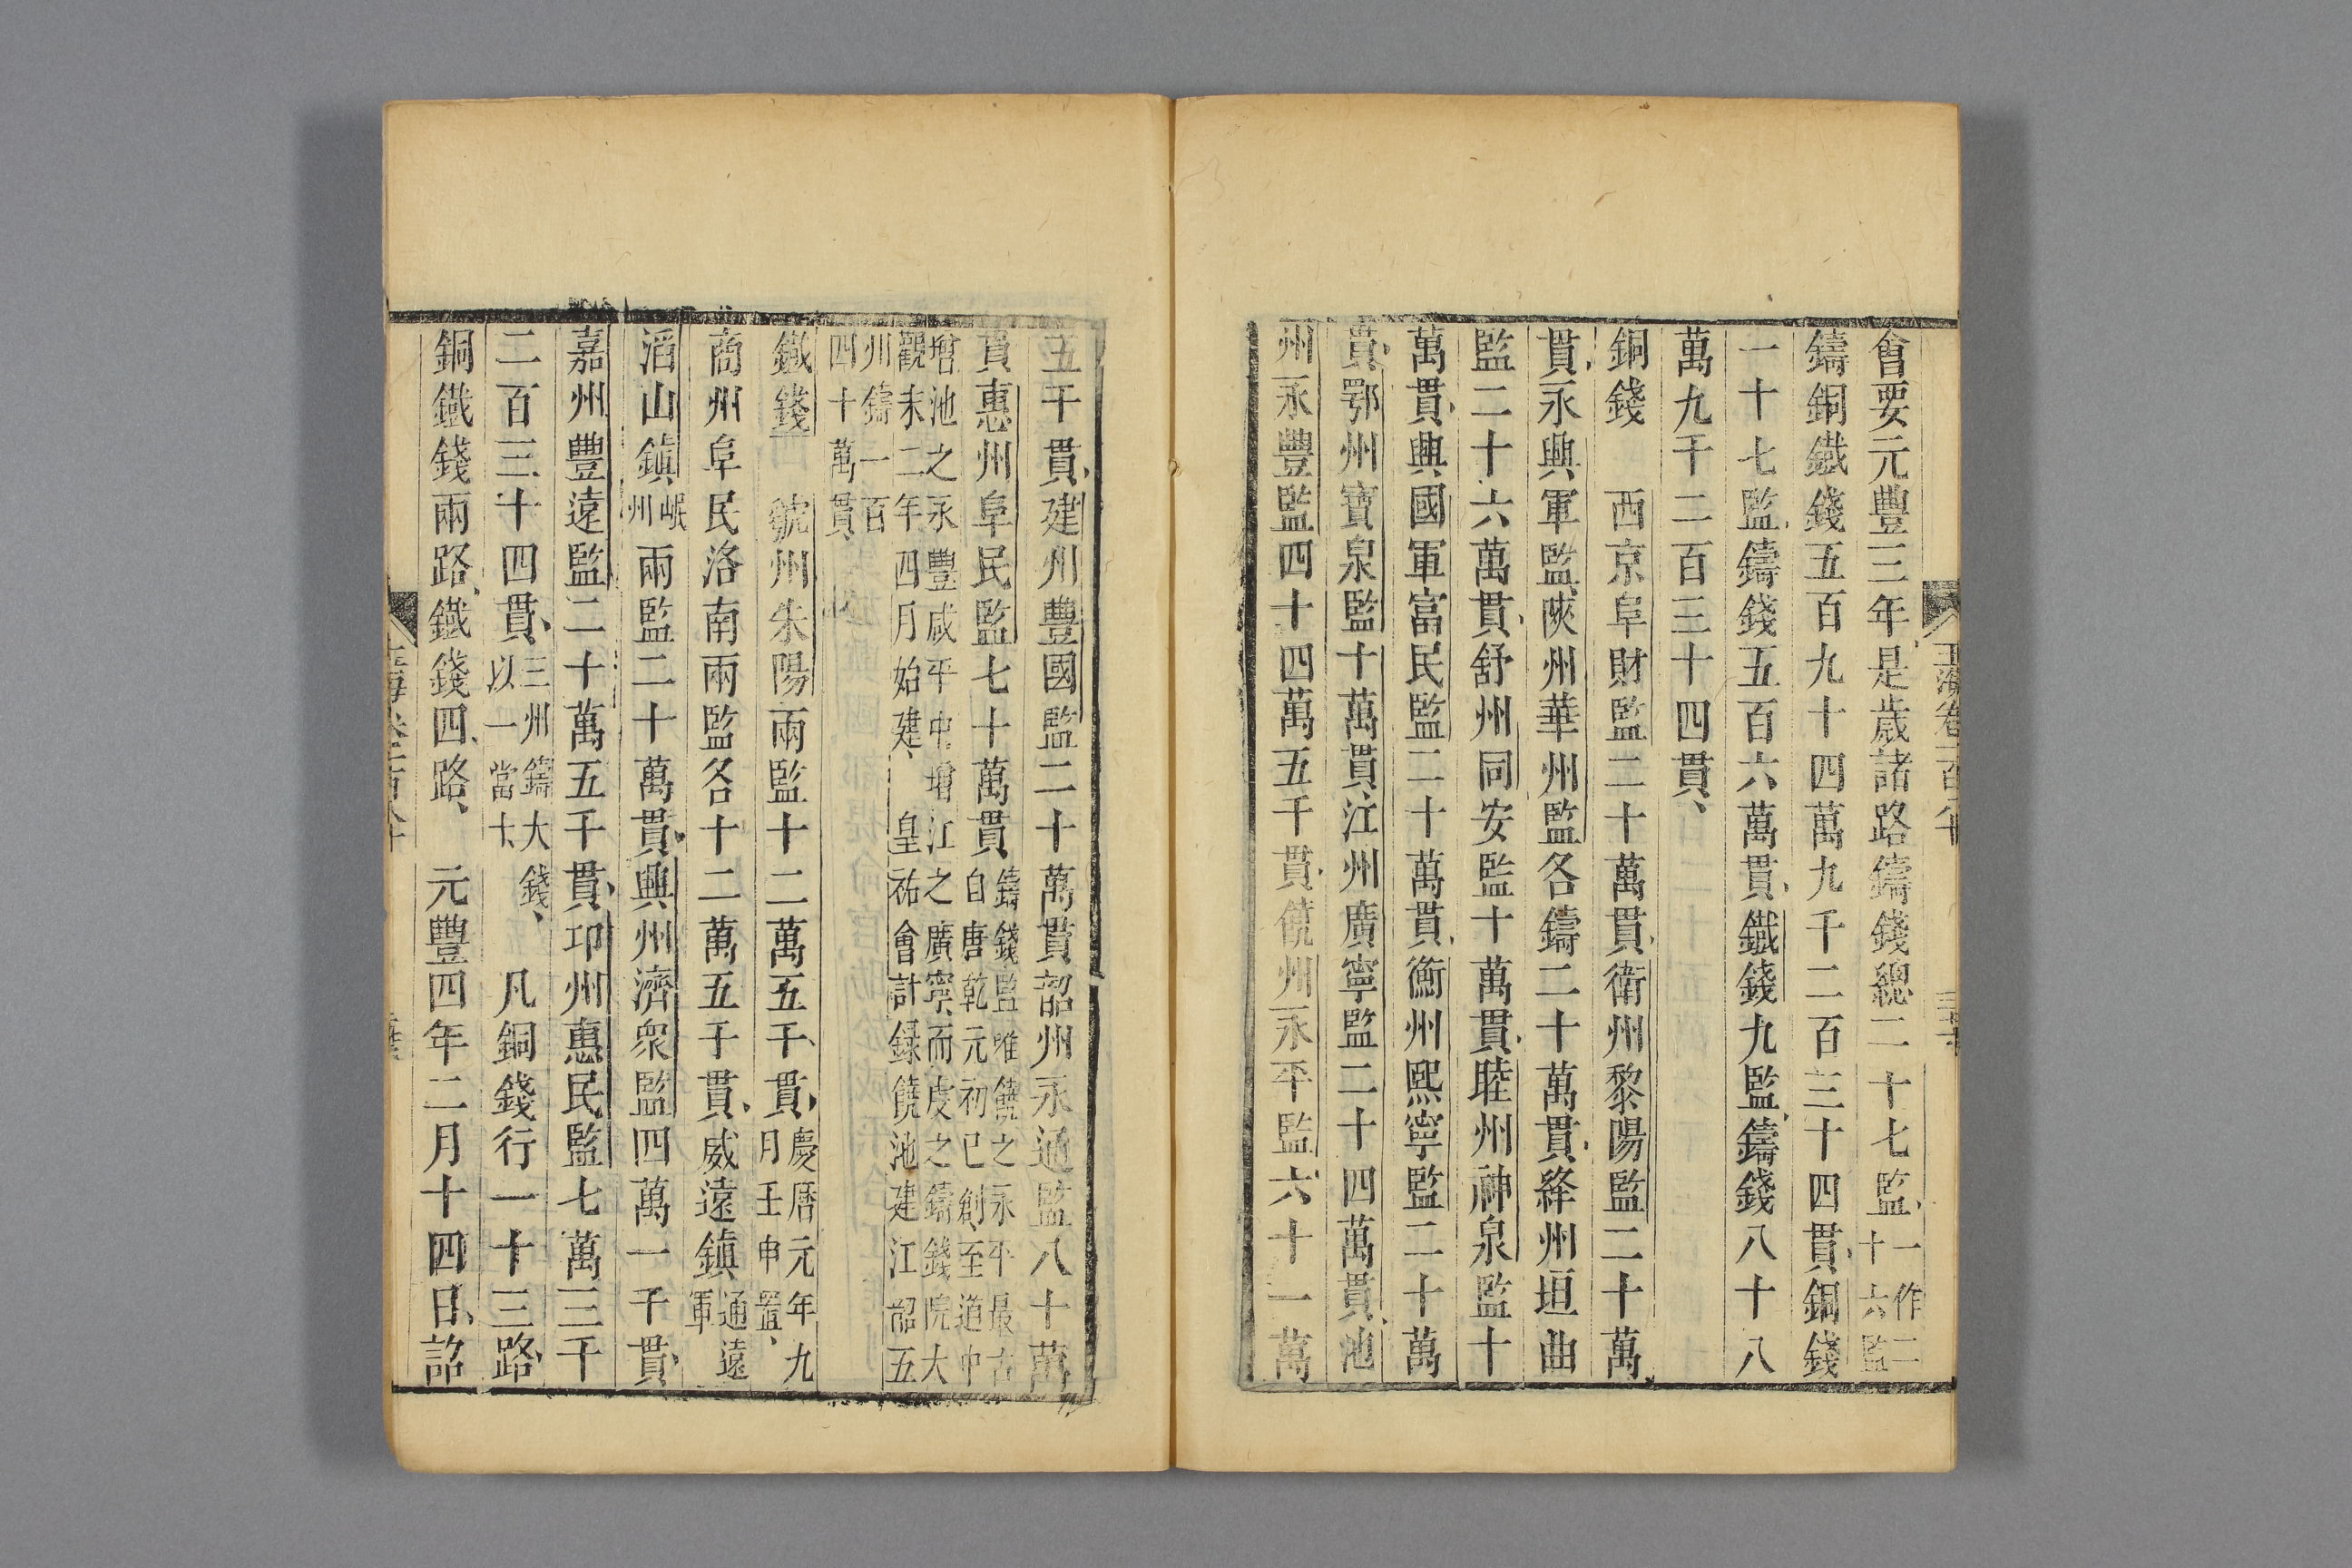 會要元豐三年是歲諸路鑄錢總二十七監一作二十六監
鑄銅鐵錢五百九十四萬九千二百三十四貫銅錢
一十七監鑄錢五百六萬貫鐵錢九監鑄錢八十八
萬九千二百三十四貫
銅錢　西京阜財監二十萬貫衛州黎陽監二十萬
貫永興軍監陝州華州監各鑄二十萬貫絳州垣曲
監二十六萬貫舒州同安監十萬貫睦州神泉監十
萬貫興國軍富民監二十萬貫衡州熙寧監二十萬
貫鄂州寶泉監十萬貫江州廣寧監二十四萬貫池
州永豐監四十四萬五千貫饒州永平監六十一萬
五千貫建州豐國監二十萬貫韶州永通監八十萬
貫惠州阜民監七十萬貫鑄錢監唯饒之永平最古自唐乾元初已創至道中
增池之永豐咸平中增江之廣寧而虔之鑄錢院大觀末二年四月始建　皇祐會計録饒池建江韶五
州鑄一百四十萬貫
鐵錢　虢州朱陽兩監十二萬五千貫慶厝元年九月壬申置
商州阜民洛南兩監各十二萬五千貫威遠鎮通遠軍
滔山鎮岷州兩監二十萬貫興州濟衆監四萬一千貫
嘉州豐遠監二十萬五千貫卭州惠民監七萬三千
二百三十四貫三州鑄大錢以一當十　凡銅錢行一十三路
銅鐵錢兩路鐵錢四路　元豐四年二月十四日詔